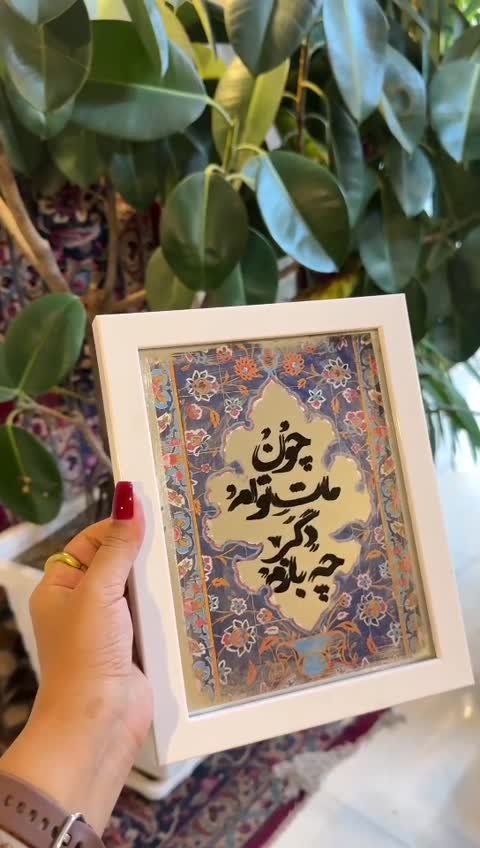 چون
مات توام
دگر
چه بازم